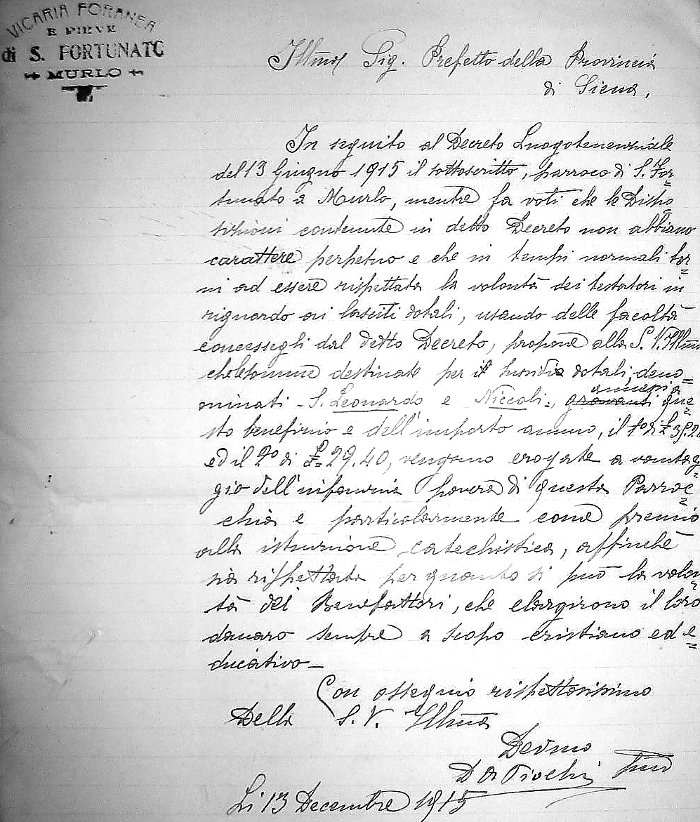 VICARIA FORANEA
E PIEVE
di S. FORTUNATO
MURLO
Illmo Sig. Prefetto della Provincia
di Siena,
In seguito al Decreto Luogotenenziale
del 13 Giugno 1915 il sottoscritto, parroco di S. For=
tunato a Murlo, mentre fa voti che le Dispo
sizioni contenute in detto Decreto non abbiano
carattere perpetuo e che in tempi normali tor=
ni ad essere rispettata la volontà dei testatori in
riguardo ai lasciti dotali, usando delle facoltà
concessegli dal detto Decreto, propone alla S. V. Illma
che le somme destinate per il dotali deno=
minati S. Leonardo e Niccoli, gravanti annessi a que=
sto benefizio e dell'importo annuo, il 1º di £
ed il 2º di £ 29.40, vengano erogate a vantag=
gio dell'infanzia povera di questa Parroc=
chia e particolarmente come premio
alla istruzione catechistica, affinchè
sia rispettata per quanto si può la volon=
tà dei Benefattori, che elargirono il loro
danaro sempre a scopo cristiano ed e=
ducativo_
Con ossequio rispettosissimo
Della S. V. Illma
Devmo
Li 13 Decembre 1915